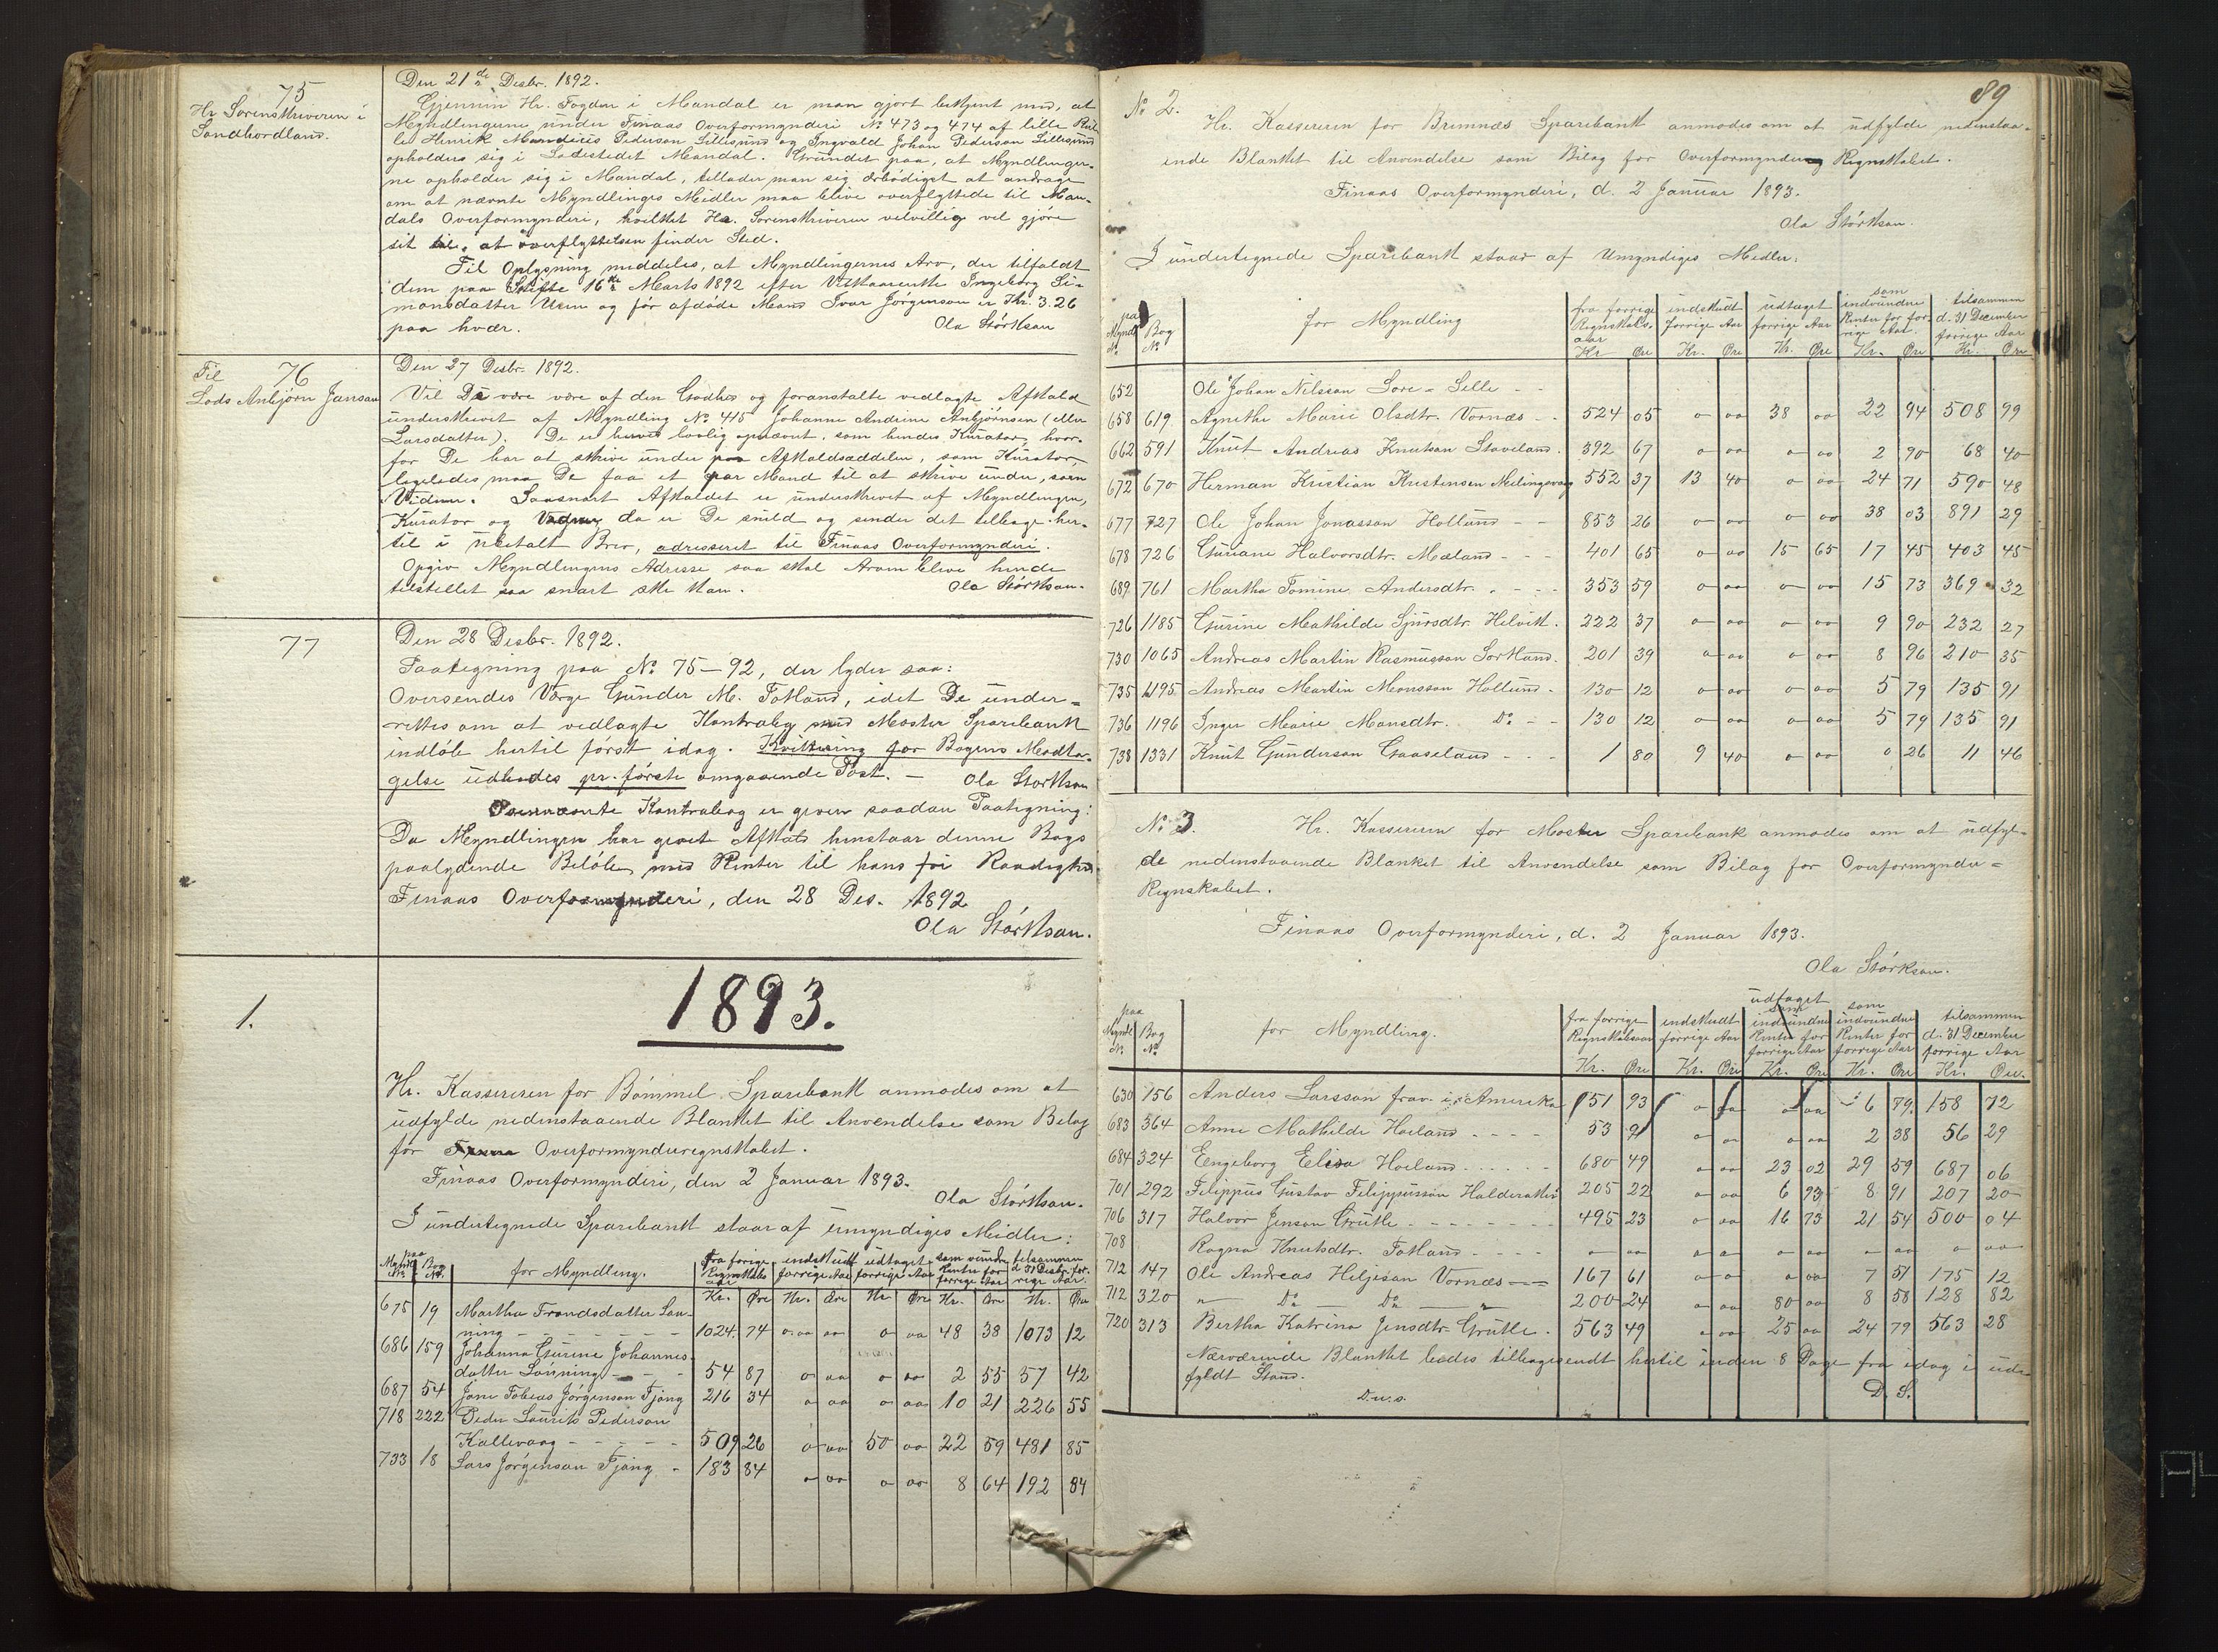 75
Hr Sorenskriveren i
Søndhordland.
Den 21de Desbr. 1892.
Gjennem Hr. Fogden i Mandal er man gjort bekjent med, at
Myndlingerne under Finaas Overformynderi No 473 og 474 af lille
Henrik Pederson Lillesund og Ingvald Johan Pederson Lillesund
opholder sig i Ladestedet Mandal. Grundet paa, at Myndlinger-
ne opholder sig i Mandal, tillader man sig ærbødigst at andrage
om at nævnte Myndlinges Midler maa blive overflyttede til Man-
dals Overformynderi, hvilket Hr. Sorenskriveren velvillig vil gjøre
sit til, at overflyttelsen finder Sted.
Til Oplysning meddeles, at Myndlingernes Arv, der tilfaldt
dem paa Skifte 16de Marts 1892 efter Ingeborg Si-
monsdatter Urem og før afdøde Mand Ivar Jørgenson er Kr. 3.26
paa hver. Ola Størkson
Til 76
Lods Anbjørn Janson
Den 27 Desbr. 1892.
Vil De være være af den Godhed og foranstalte vedlagte Afkald
underskrevet af Myndling No 415 Johanne Andrine Anbjørnsen (eller
Larsdatter). De er lovlig opnævnt, som hendes Kurator, hvor-
for De har at skrive under paa Afkaldsseddelen, som Kurator,
ligeledes maa De faa et par Mand til at skrive under, som
Vidner. Saasnart Afkaldet er underskrevet af Myndlingen,
Kurator og Vidner, da er De snild og sender det tilbage her-
til i ubetalt Brev, adresseret til Finaas Overformynderi.
Opgiv Myndlingens Adresse saa skal Arven blive hende
tilstillet saa snart ske kan. Ola Størkson.
77
Den 28 Desbr. 1892.
Paategning paa No 75-92, der lyder saa:
Oversendes Værge Gunder M. Totland, idet De under-
rettes om at vedlagte Kontrabog med Moster Sparebank
indløb hertil først idag. Kvittering for Bogens Modta-
gelse udbedes pr. første omgaaende Post. - Ola Størkson
Ovennævnte Kontrabog er given saadan Paategning:
Da Myndlingen har givet Afkald henstaar denne Bogs
paalydende Beløb med Renter til hans fri Raadighed.
Finaas Overformynderi, den 28 Des. 1892
Ola Størkson.
1.
1893.
Hr. Kassereren for Bømmel Sparebank anmodes om at
udfylde nedenstaaende Blanket til Anvendelse som Bilag
for Overformynderregnskabet.
Finaas Overformynderi, den 2 Januar 1893.
Ola Størkson.
I undertegnede Sparebank staar af umyndiges Midler:
paa
Myndl. No Bog No. for Myndling. fra forrige Regnskabsaar indskudt forrige Aar udtaget forrige Aar som vundne Renter for forrige Aar tilsammen d. 31 Desbr. forrige Aar.
Kr. Øre Kr. Øre Kr. Øre Kr. Øre Kr. Øre
675 19 Martha Trondsdatter Løn-
ning - - - 1024 74 o oo o oo 48 38 1073 12
686 159 Johanna Gurine Johannes-
datter Lønning - - 54 87 o oo o oo 2 55 57 42
687 54 Jens Tobias Jørgenson Tjong 216 34 o oo o oo 10 21 226 55
718 222 Peder Laurits Pederson
Kallevaag - - - 509 26 o oo 50 oo 22 59 481 85
733 18 Lars Jørgenson Tjong - 183 84 o oo o oo 8 64 192 84
89
No 2.
Hr. Kassereren for Bremnæs Sparebank anmodes om at udfylde nedenstaa-
ende Blanket til Anvendelse som Bilag for Overformynder Regnskabet.
Finaas Overformynderi, d. 2 Januar 1893.
Ola Størkson.
I undertegnede Sparebank staar af Umyndiges Midler:
paa
Myndl. No Bog No for Myndling fra forrige Regnskabsaar indskudt forrige Aar udtaget forrige Aar som indvundne Renter for forrige Aar. tilsammen d. 31 December forrige Aar
Kr Øre Kr. Øre Kr. Øre Kr. Øre Kr. Øre
652 Ole Johan Nilsson Sore-Selle - -
658 619 Agnethe Marie Olsdtr. Vornæs - - 524 05 o oo 38 oo 22 94 508 99
662 591 Knut Andreas Knutson Staveland. 392 67 o oo o oo 2 90 68 40
672 670 Herman Kristian Kristensen Meilingsvaag 552 37 13 40 o oo 24 71 590 48
677 727 Ole Johan Jonasson Hollund - - 853 26 o oo o oo 38 03 891 29
678 726 Guriane Halvorsdtr. Mæland - - - 401 65 o oo 15 65 17 45 403 45
689 761 Martha Tomine Andersdtr. - - - 353 59 o oo o oo 15 73 369 32
726 1185 Gurine Mathilde Sjursdtr. Helvik. 222 37 o oo o oo 9 90 232 27
730 1065 Andreas Martin Rasmusson Sortland. 201 39 o oo o oo 8 96 210 35
735 1195 Andreas Martin Monsson Hollund - 130 12 o oo o oo 5 79 135 91
736 1196 Inger Marie Monsdtr. Do - - 130 12 o oo o oo 5 79 135 91
738 1331 Knut Gunderson Gaaseland - - - 1 80 9 40 o oo o 26 11 46
No 3. Hr. Kassereren for Moster Sparebank anmodes om at udfyl-
de nedenstaaende Blanket til Anvendelse som Bilag for Overformynder-
Regnskabet.
Finaas Overformynderi, d. 2 Januar 1893.
Ola Størkson.
paa
Myndl. No. Bog No. for Myndling. fra forrige Regnskabsaar indskudt forrige Aar udtaget som indvundne Renter for forrige Aar som indvundne Renter for forrige Aar tilsammen d. 31 December forrige Aar
Kr. Øre Kr. Øre Kr. Øre Kr. Øre Kr. Øre.
630 156 Anders Larsson frav. i Amerika 151 93 o oo o oo 6 79 158 72
683 364 Anne Mathilde Hoiland - - - - 53 91 o oo o oo 2 38 56 29
684 324 Engeborg Elisa Hoiland - - - 680 49 o oo 23 02 29 59 687 06
701 292 Filippus Gustav Filippusson Halderaker 205 22 o oo 6 93 8 91 207 20
706 317 Halvor Jenson Grutle - - - 495 23 o oo 16 73 21 54 500 04
708 Ragna Knutsdtr. Totland - - - - o oo o oo o oo o oo o oo
712 147 Ole Andreas Heljeson Vornæs - - 167 61 o oo o oo 7 51 175 12
712 320 " Do Do " 200 24 o oo 80 oo 8 58 128 82
720 313 Bertha Katrina Jensdtr. Grutle. 563 49 o oo 25 oo 24 79 563 28
Nærværende Blanket bedes tilbagesendt hertil inden 8 Dage fra idag i ud-
fyldt Stand.
D.u.s. D. S.